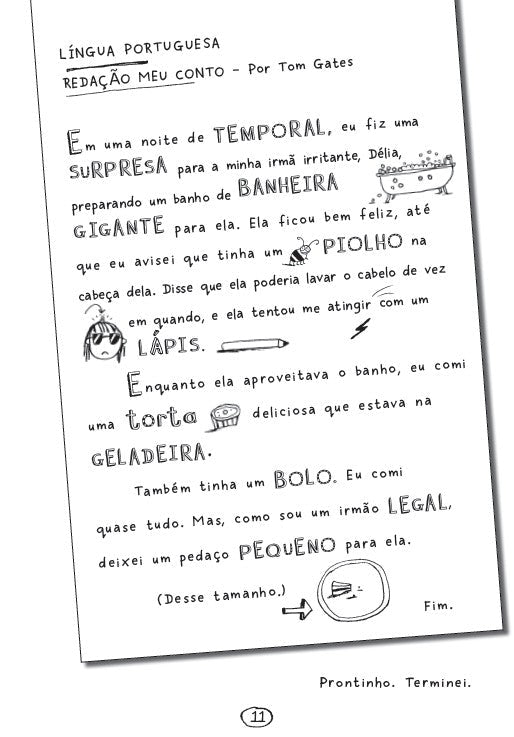 LÍNGUA PORTUGUESA
REDAÇÃO MEU CONTO - Por Tom Gates
Em uma noite de TEMPORAL, eu fiz uma
SuRPRESA para a minha irmã irritante, Délia,
preparando um banho de BANHEIRA
GIGANTE para ela. Ela ficou bem feliz, até
que eu avisei que tinha um PIOLHO na
cabeça dela. Disse que ela poderia lavar o cabelo de vez
em quando, e ela tentou me atingir com um
LÁPIS.
Enquanto ela aproveitava o banho, eu comi
uma torta deliciosa que estava na
GELADEIRA.
Também tinha um BOLO. Eu comi
quase tudo. Mas, como sou um irmão LEGAL,
deixei um pedaço PEQUENO para ela.
(Desse tamanho.)
Fim.
Prontinho. Terminei.
11